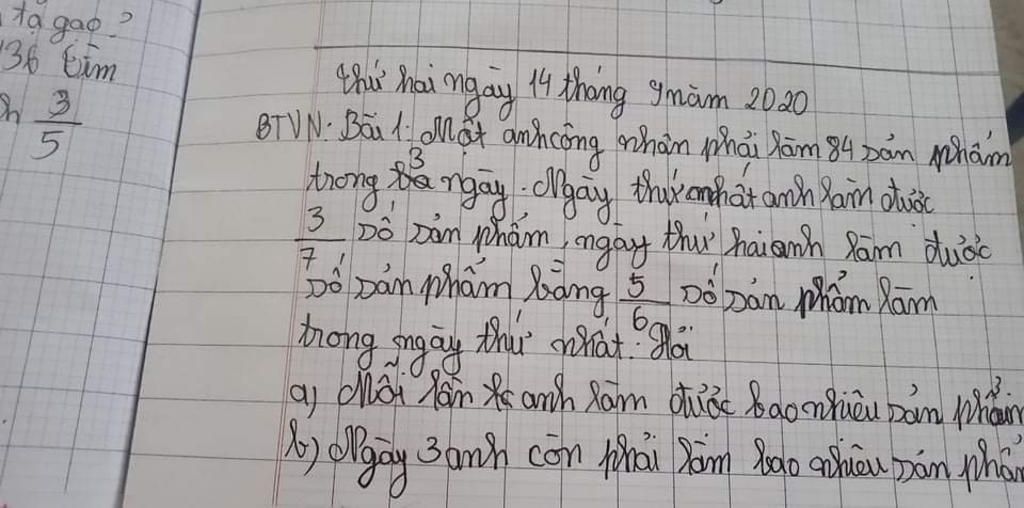 tạ gạo?
36 tìm
3
5
thứ hai ngày 14 tháng 9 năm 2020
BTVN: Bài 1: Một anh công nhân phải làm 84 sản phẩm
trong 3 ngày. Ngày thứ nhất anh làm được
3/7 số sản phẩm, ngày thứ hai anh làm được
số sản phẩm bằng 5/6 số sản phẩm làm
trong ngày thứ nhất. Hỏi
a) Mỗi lần anh làm được bao nhiêu sản phẩm
b) Ngày 3 anh còn phải làm bao nhiêu sản phẩm